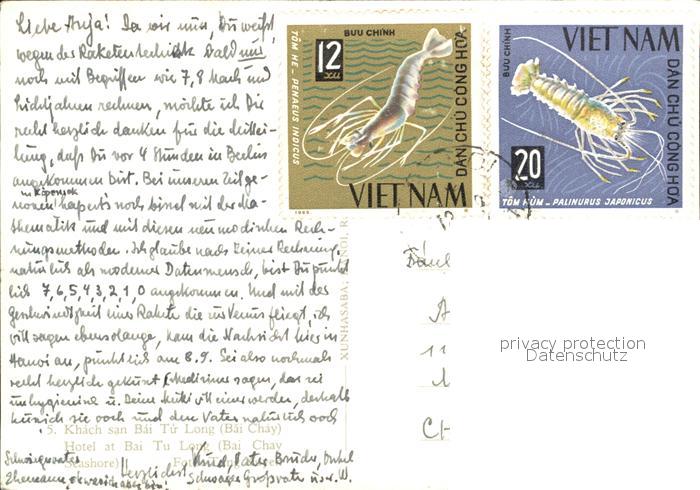 Liebe Anja! Da wir nun, Du weißt,
wegen der Raketentechnik bald nur
noch mit Begriffen wie 7,8 Mach und
Lichtjahren rechnen, möchte ich Dir
recht herzlich danken für die Mittei-
lung, daß Du vor 4 Stunden in Berlin
angekommen bist. Bei unseren Zeitge-
in Köpenick
nossen hapert's noch bissel mit der Ma-
thematik und mit diesen neumodischen Rech-
nungsmethoden. Ich glaube nach Deiner Rechnung,
natürlich als moderner Datenmensch, bist Du pünkt-
lich 7,6,5,4,3,2,1,0 angekommen. Und mit der
Geschwindigkeit einer Rakete die zur Venus fliegt, ich
will sagen ebensolange, kam die Nachricht hier in
Hanoi an, pünktlich am 8.9. Sei also nochmals
recht herzlich geküßt (Mediziner sagen, das sei
unhygienisch u. Deine will einer werden, deshalb
küsse ich sie noch und den Vater natürlich ooch
Schwiegervater
Ehemann,
Herzlichst
Vater, Bruder, Onkel
Schwager Großvater usw. W.
5. Khách sạn Bái Tử Long (Bãi Cháy)
Hotel at Bai Tu Long (Bai Chay
Seashore)
XUNHASABA, HANOI, R.
BƯU CHÍNH
12
XU
TÔM HE - PENAEUS INDICUS
DÂN CHỦ CỘNG HÒA
VIET NAM
1965
BƯU CHÍNH
VIET NAM
DÂN CHỦ CỘNG HÒA
20
XU
TÔM HÙM - PALINURUS JAPONICUS
A
11
CH
privacy protection
Datenschutz